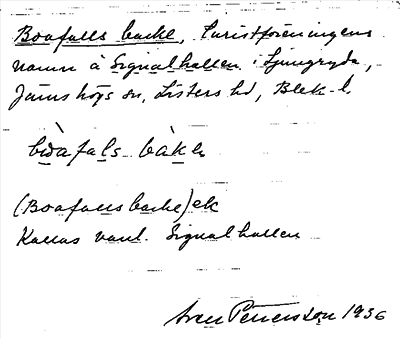 Boafalls backe, Turistföreningens
namn å Signalhallen i Ljungryda,
Jämshögs sn, Listers hd, Blek. l.
bòafals bàkə
(Boafalls backe) ek
Kallas vanl. Signalhallen
Sven Petersson 1936